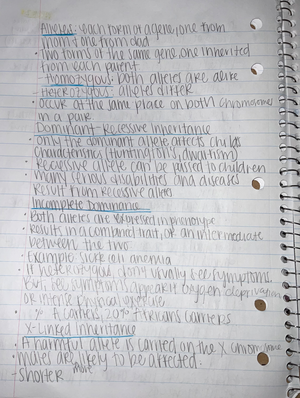 Alleles: each form of a gene, one from
mom & one from dad
• Two forms of the same gene, one inherited
from each parent
- Homozygous: both alleles are alike
- Heterozygous: alleles differ
• occur at the same place on both chromosomes
in a pair
Dominant-Recessive Inheritance
• only the dominant allele affects childs
characteristics (Huntingtons, dwarfism)
• Recessive allele can be passed to children
• Many serious disabilities and diseases
result from recessive alleles
Incomplete Dominance
• Both alleles are expressed in phenotype
• Results in a combined trait, or an intermediate
between the two
• Example: sickle cell anemia
• If heterozygous, dony usually see symptoms.
But, symptoms appear if oxygen deprivation
or intense physical exercise
% A carriers, 20% Africans carriers
X-Linked Inheritance
• A harmful allele is carried on the X chromosome
• males are more likely to be affected.
- shorter